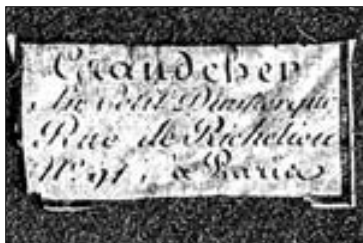 Grandcher
Au Petit Dunkerque
Rue de Richelieu
N.º 91, à Paris